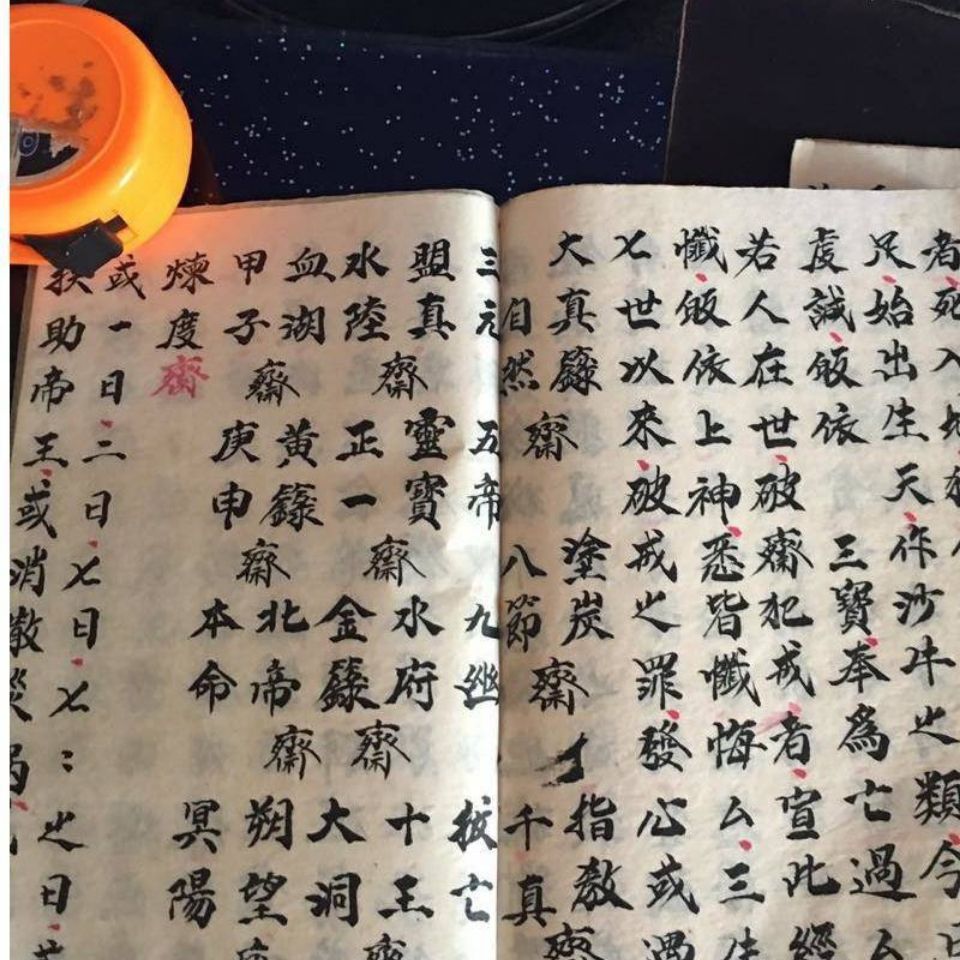 者死入
足始出生天作沙牛之類今
虔誠皈依 三寶奉為亡過ム
若人在世破齋犯戒者宣此經
懺皈依上神悉皆懺悔ム三生
七世以來破戒之罪發心或遇
大真籙 塗炭 指教
自然 齋 八節 齋 千真 齋
三元 五帝 九幽 拔亡
盟真 靈寶 水府 十王
水陸 齋 正一 齋 金籙 齋 大洞 齋
血湖 黃籙 北帝 朔望
甲子 齋 庚申 齋 本命 齋 冥陽
煉度 齋
或一日二日七日七:之日
扶助帝王或消散災禍